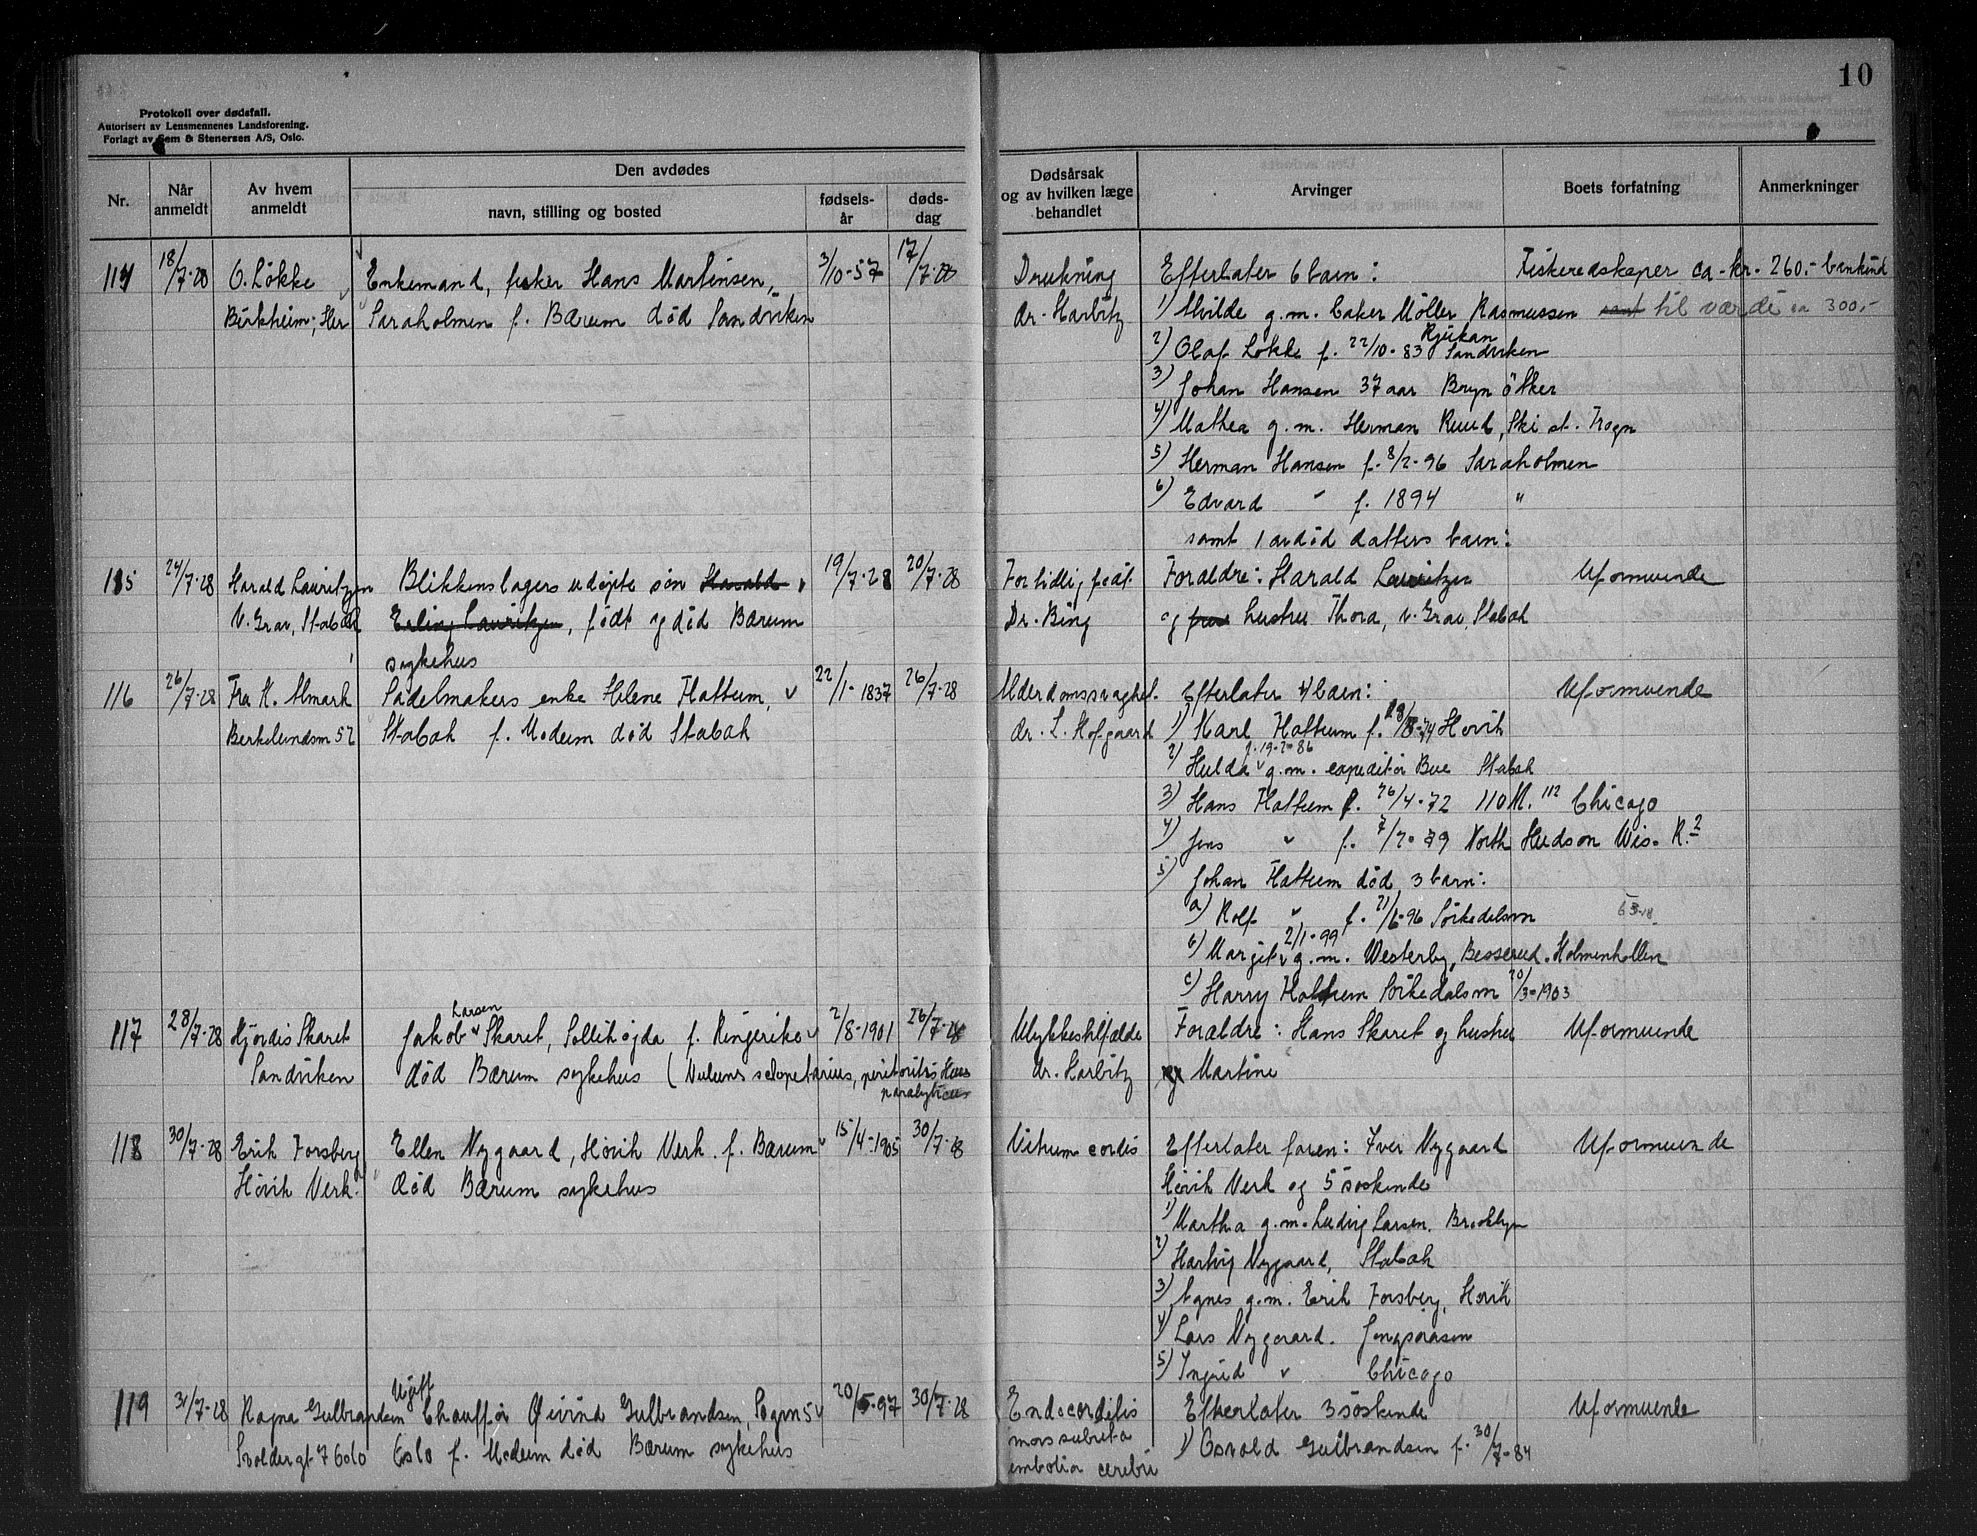 10
Protokoll over dødsfall.
Autorisert av Lensmennenes Landsforening.
Forlagt av Sem & Stenersen A/S, Oslo.
Nr.
Når anmeldt
Av hvem anmeldt
Den avdødes
navn, stilling og bosted
fødsels-år
døds-dag
Dødsårsak og av hvilken læge behandlet
Arvinger
Boets forfatning
Anmerkninger
114 18/7-28 O. Løkke Enkemand, fisker Hans Martinsen, 3/10-57 17/7-28 Drukning Efterlater 6 barn: Fiskeredskaper ca. kr. 260.-
Birkheim, Her Saraholmen f. Bærum død Sandviken dr. Harbitz 1) Alvilde g.m. baker Møller Rasmussen samt til værdi ca 300,-
Rjukan
2) Olaf Løkke f. 22/10-83 Sandviken
3) Johan Hansen 37 aar Bryn ö Aker
4) Mathea g.m. Herman Ruud, Ski st. Trogn
5) Herman Hansen f. 8/2-96 Saraholmen
6) Edvard " f. 1894 "
samt 1 avdød datters barn:
115 24/7-28 Harald Lauritzen Blikkenslagers udøpte søn Harald 19/7-28 20/7-28 For tidlig født Foraldre: Harald Lauritzen Uformuende
V. Grav, Stabæk Erling Lauritzen, født og død Bærum Dr. Bing og frue hustru Thora, v. Grav, Stabæk
sykehus
116 26/7-28 Fra K. Almark Sadelmakers enke Helene Hattum, 22/1-1837 26/7-28 Alderdomssvaghet. Efterlater 4 barn: Uformuende
Berkelundsvn 57 Stabæk f. Modum død Stabæk dr. L. Hofgaard 1) Karl Hattum f. Høvik
f. 19-2-86
2) Hulda g.m. expeditør Bue Stabæk
3) Hans Hattum f. 26/4-72 110 N. 112 Chicago
4) Jens " f. 7/7-79 North Hudson Wis. R. 2
5) Johan Hattum død, 3 barn:
a) Rolf " f. 21/6-96 Sørkedalsvn
2/1-99
b) Margit g.m. Westerby, Besserud. Holmenkollen
c) Harry Hattum Sørkedalsvn 20/3-1903
Larsen
117 28/7-28 Hjørdis Skaret Jakob Skaret, Sollihøgda f. Ringerike 2/8-1901 26/7-28 Ulykkestilfælde Foraldre: Hans Skaret og hustru Uformuende
Sandviken død Bærum sykehus (Vulnus sclopetarius, peritonitis Ileus dr. Harbitz og Martine
paralyticus
118 30/7-28 Erik Forsberg Ellen Nygaard, Høvik Verk. f. Bærum 15/4-1905 30/7-28 Vitium cordis Efterlater faren: Iver Nygaard Uformuende
Høvik Verk. død Bærum sykehus Høvik Verk og 5 søskende
1) Martha g.m. Ludvig Larsen. Brooklyn
2) Hartvig Nygaard, Stabæk
3) Agnes g.m. Erik Forsberg, Høvik
4) Lars Nygaard. Jongsåsen
5) Ingrid " Chicago
Ugift
119 31/7-28 Ragna Gulbrandsen Chauffør Øivind Gulbrandsen, Sognsv 20/5-97 30/7-28 Endocarditis Efterlater 3 søskende Uformuende
Svoldergt 7 Oslo Oslo f. Modum død Bærum sykehus mors subita 1) Osvald Gulbrandsen f. 30/7-84
embolia cerebri